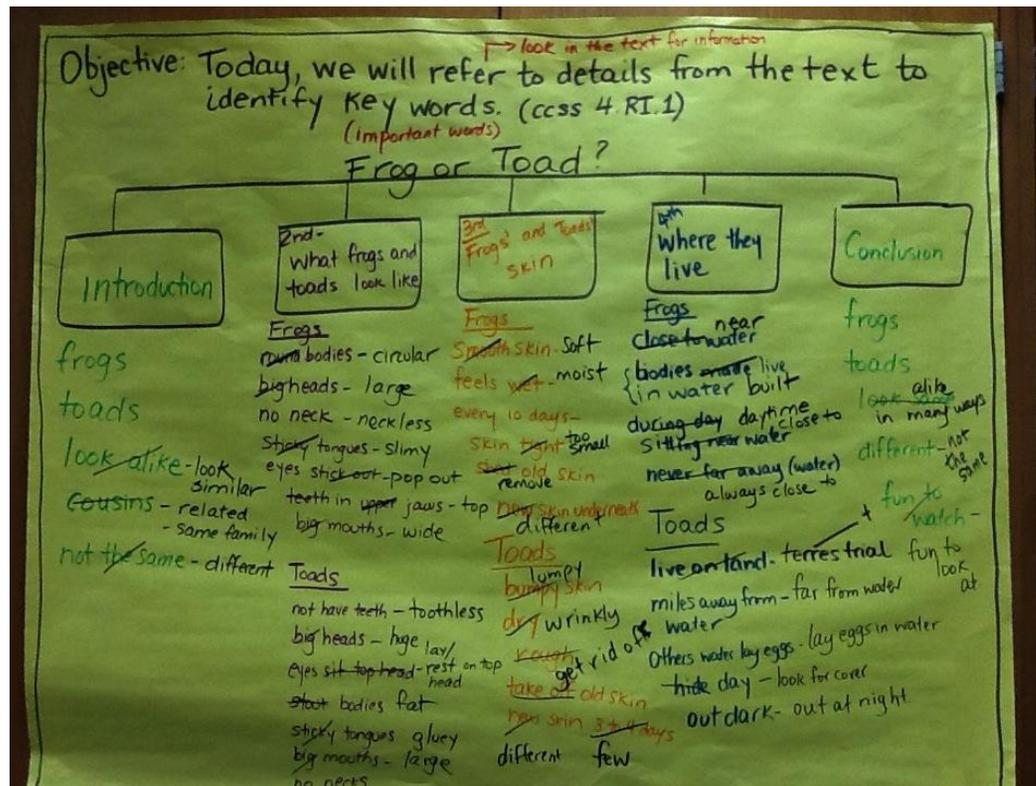 look in the text for information
Objective: Today, we will refer to details from the text to
identify key words. (ccss 4.RI.1)
(important words)
Frog or Toad?
Introduction
frogs
toads
look alike - look
similar
cousins - related
- same family
not the same - different
2nd-
What frogs and
toads look like
Frogs
round bodies - circular
big heads - large
no neck - neckless
sticky tongues - slimy
eyes stick out - pop out
teeth in upper jaws - top
big mouths - wide
Toads
not have teeth - toothless
big heads - huge
lay/
eyes sit top head - rest on top
head
stout bodies fat
sticky tongues gluey
big mouths - large
no necks
3rd
Frogs' and Toads'
Skin
Frogs
Smooth skin - soft
feels wet - moist
every 10 days-
too
skin tight small
shed old skin
remove
new skin underneath
different
Toads
lumpy
bumpy skin
dry wrinkly
rough
get rid of
take off old skin
new skin 3 to 4 days
different few
4th
Where they
live
Frogs
near
close to water
bodies made live
in water built
during day daytime
close to
sitting near water
never far away (water)
always close to
Toads
live on land - terrestrial
miles away from - far from water
water
Others water lay eggs - lay eggs in water
hide day - look for cover
out dark - out at night
Conclusion
frogs
toads
alike
look same
in many ways
different - not
the
same
fun to
watch -
fun to
look
at